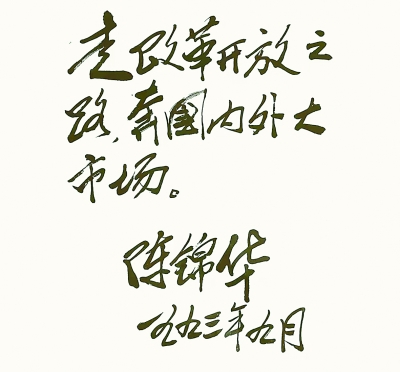 走改革开放之
路,奔國内外大
市场。
陈锦华
一九九三年九月